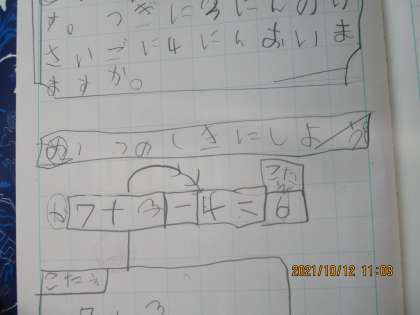 す。つぎに3にんのり
さいごに4にんおりま
ますか。
め 1つのしきにしよう
こたえ
し 7+3-4=6
こたえ
7+3
2021/10/12 11:03